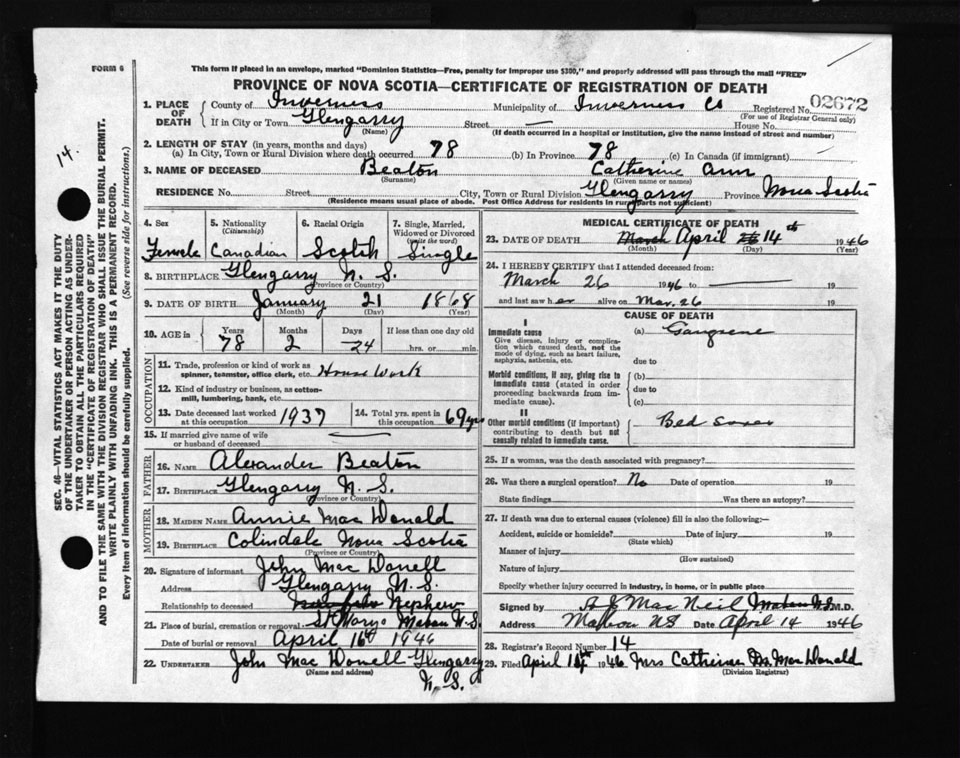 FORM 6
This form if placed in an envelope, marked "Dominion Statistics—Free, penalty for improper use $300," and properly addressed will pass through the mail "FREE"
PROVINCE OF NOVA SCOTIA—CERTIFICATE OF REGISTRATION OF DEATH
1. PLACE OF DEATH County of Inverness Municipality of Inverness Co Registered No. 02672
(For use of Registrar General only)
If in City or Town Glengarry Street — House No.
(Name) (If death occurred in a hospital or institution, give the name instead of street and number)
2. LENGTH OF STAY (in years, months and days)
(a) In City, Town or Rural Division where death occurred 78 (b) In Province 78 (c) In Canada (if immigrant)
3. NAME OF DECEASED Beaton Catherine Ann
(Surname) (Given name or names)
RESIDENCE No. Street City, Town or Rural Division Glengarry Province Nova Scotia
(Residence means usual place of abode. Post Office Address for residents in rural parts not sufficient)
4. Sex 5. Nationality (Citizenship) 6. Racial Origin 7. Single, Married, Widowed or Divorced (write the word)
Female Canadian Scotch Single
8. BIRTHPLACE Glengarry N. S.
(Province or Country)
9. DATE OF BIRTH January 21 1868
(Month) (Day) (Year)
10. AGE in Years Months Days If less than one day old
78 2 24 hrs. or min.
OCCUPATION
11. Trade, profession or kind of work as spinner, teamster, office clerk, etc. House Work
12. Kind of industry or business, as cotton-mill, lumbering, bank, etc.
13. Date deceased last worked at this occupation 1937 14. Total yrs. spent in this occupation 69 yrs
15. If married give name of wife or husband of deceased
FATHER
16. NAME Alexander Beaton
17. BIRTHPLACE Glengarry N. S.
(Province or Country)
MOTHER
18. MAIDEN NAME Annie Mac Donald
19. BIRTHPLACE Colindale Nova Scotia
(Province or Country)
20. Signature of informant John Mac Donell
Address Glengarry N. S.
Relationship to deceased Nephew
21. Place of burial, cremation or removal St Marys Mabou N. S.
Date of burial or removal April 16th 1946
22. UNDERTAKER John Mac Donell Glengarry
(Name and address) N. S.
MEDICAL CERTIFICATE OF DEATH
23. DATE OF DEATH March April 14th 1946
(Month) (Day) (Year)
24. I HEREBY CERTIFY that I attended deceased from:
March 26 1946 to — 19
and last saw her alive on Mar. 26 19
CAUSE OF DEATH
I
Immediate cause (a) Gangrene
Give disease, injury or complication which caused death, not the mode of dying, such as heart failure, asphyxia, asthenia, etc. due to
Morbid conditions, if any, giving rise to immediate cause (stated in order proceeding backwards from immediate cause). (b)
due to
(c)
II
Other morbid conditions (if important) contributing to death but not causally related to immediate cause. Bed Sores
25. If a woman, was the death associated with pregnancy?
26. Was there a surgical operation? No Date of operation 19
State findings Was there an autopsy?
27. If death was due to external causes (violence) fill in also the following:—
Accident, suicide or homicide? Date of injury 19
(State which)
Manner of injury
(How sustained)
Nature of injury
Specify whether injury occurred in industry, in home, or in public place
Signed by A J Mac Neil Mabou N S M.D.
Address Mabou N S Date April 14 1946
28. Registrar's Record Number 14
29. Filed April 1946 Mrs Catherine Mac Donald
(Division Registrar)
14.
SEC. 46—VITAL STATISTICS ACT MAKES IT THE DUTY
OF THE UNDERTAKER OR PERSON ACTING AS UNDER-
TAKER TO OBTAIN ALL THE PARTICULARS REQUIRED
IN THE "CERTIFICATE OF REGISTRATION OF DEATH"
AND TO FILE THE SAME WITH THE DIVISION REGISTRAR WHO SHALL ISSUE THE BURIAL PERMIT.
WRITE PLAINLY WITH UNFADING INK. THIS IS A PERMANENT RECORD.
Every item of information should be carefully supplied. (See reverse side for instructions.)